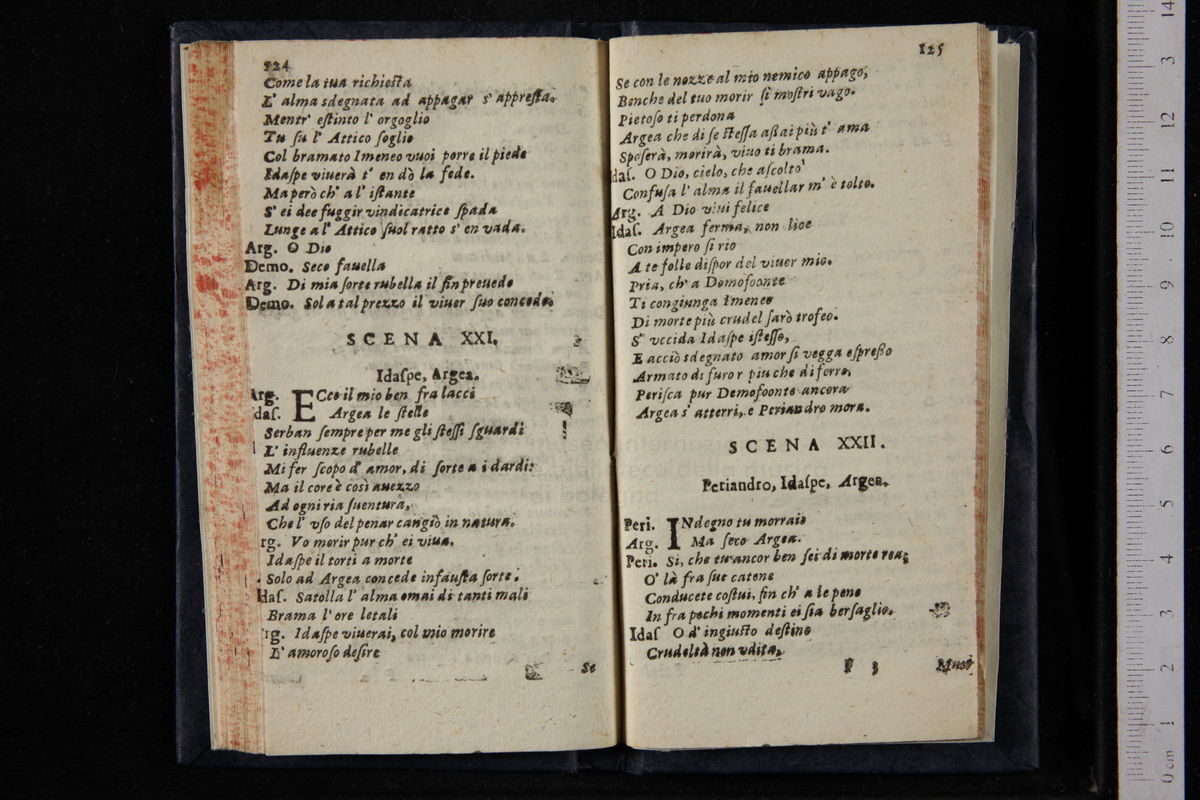 124
Come la tua richieſta
L' alma sdegnata ad appagar s' appreſta.
Mentr' eſtinto l' orgoglio
Tu ſu l' Attico ſoglio
Col bramato Imeneo vuoi porre il piede
Idaſpe viuerà t' en dò la fede.
Ma però ch' a l' iſtante
S' ei dee fuggir vindicatrice ſpada
Lunge a l' Attico ſuol ratto s' en vada.
Arg. O Dio
Demo. Seco fauella
Arg. Di mia ſorte rubella il fin preuedo
Demo. Sol a tal prezzo il viuer ſuo concedo.
SCENA XXI.
Idaſpe, Argea.
Arg. ECco il mio ben fra lacci
daſ. Argea le ſtelle
Serban ſempre per me gli ſteſſi ſguardi
L' influenze rubelle
Mi fer ſcopo d' amor, di ſorte a i dardi:
Ma il core è così auezzo
Ad ogni ria ſuentura,
Che l' vſo del penar cangiò in natura.
rg. Vo morir pur ch' ei viua.
Idaſpe il torti a morte
Solo ad Argea concede infauſta ſorte.
daſ. Satolla l' alma omai di tanti mali
Brama l' ore letali
rg. Idaſpe viuerai, col mio morire
L' amoroſo deſire
Se
125
Se con le nozze al mio nemico appago,
Benche del tuo morir ſi moſtri vago.
Pietoſo ti perdona
Argea che di ſe ſteſſa aſſai più t' ama
Spoſerà, morirà, viuo ti brama.
daſ. O Dio, cielo, che aſcolto
Confuſa l' alma il fauellar m' è tolto.
Arg. A Dio viui felice
Idaſ. Argea ferma, non lice
Con impero ſi rio
A te folle diſpor del viuer mio.
Pria, ch' a Demofoonte
Ti congiunga Imeneo
Di morte più crudel ſarò trofeo.
S' vccida Idaſpe iſteſſo,
E acciò sdegnato amor ſi vegga eſpreſſo
Armato di furor piu che di ferro,
Periſca pur Demofoonte ancora
Argea s' atterri, e Periandro mora.
SCENA XXII.
Periandro, Idaſpe, Argea.
Peri. INdegno tu morrai
Arg. Ma ſeco Argea.
Peri. Si, che tu ancor ben ſei di morte rea;
O' là fra ſue catene
Conducete coſtui, fin ch' a le pene
In fra pochi momenti ei ſia berſaglio.
Idaſ O d' ingiuſto deſtino
Crudeltà non vdita,
F 3